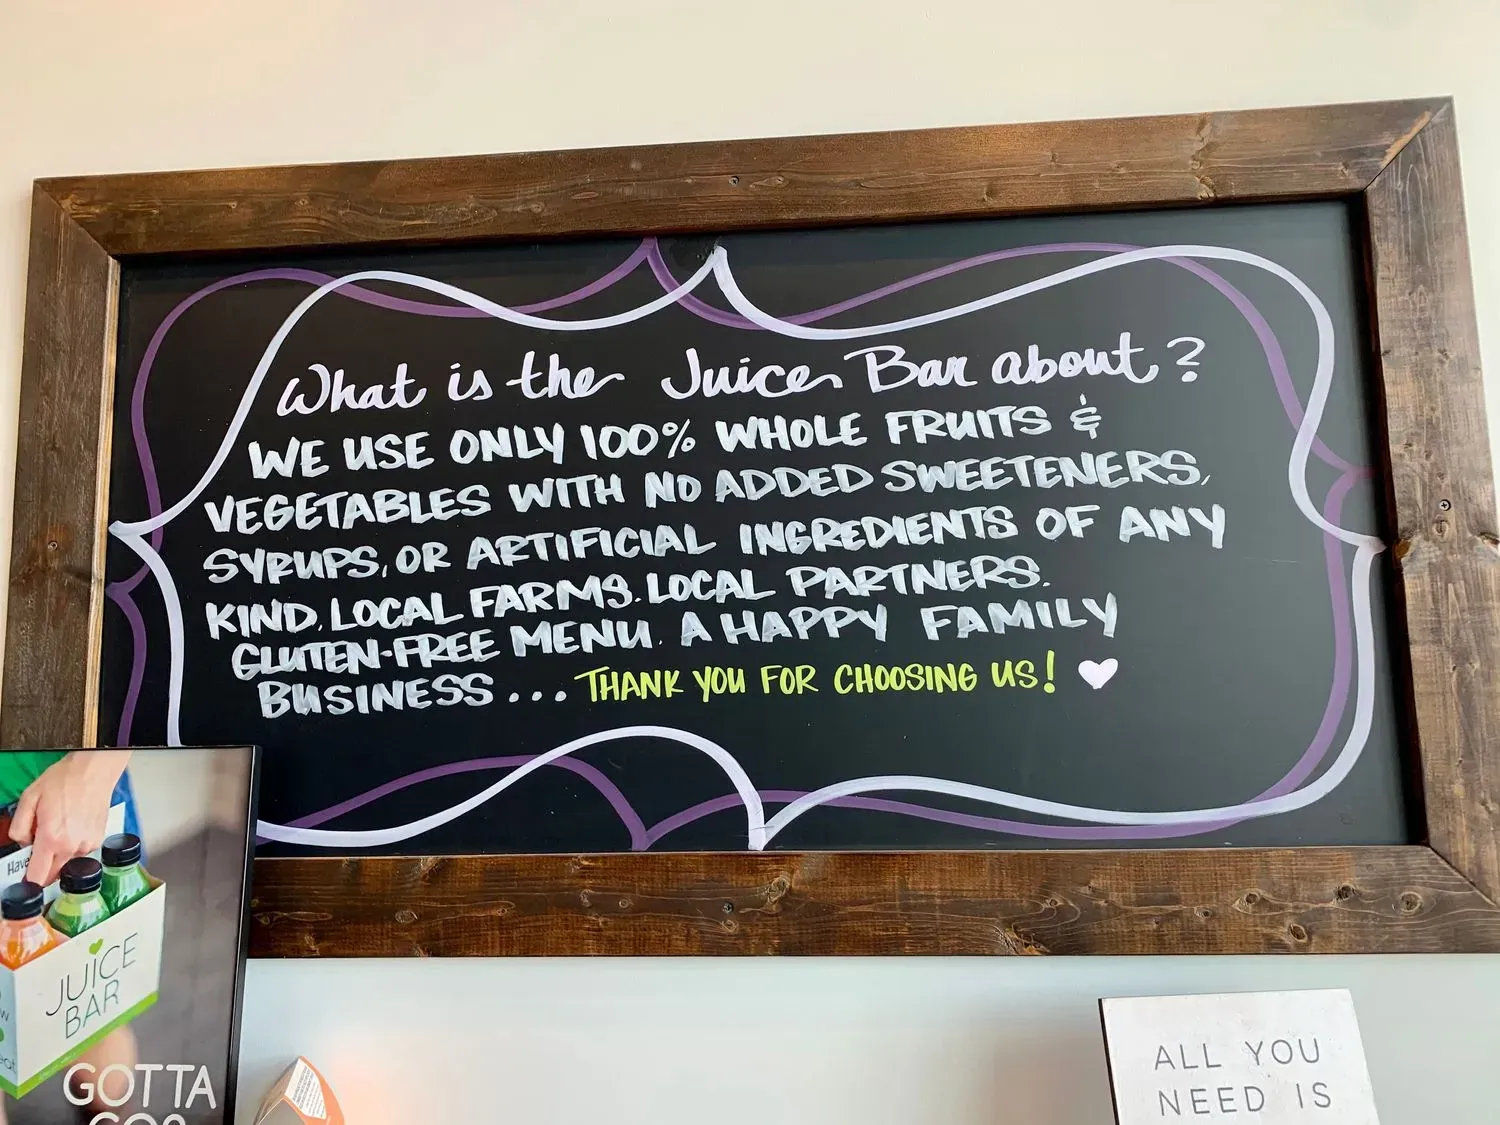 What is the Juice Bar about?
WE USE ONLY 100% WHOLE FRUITS &
VEGETABLES WITH NO ADDED SWEETENERS,
SYRUPS, OR ARTIFICIAL INGREDIENTS OF ANY
KIND. LOCAL FARMS. LOCAL PARTNERS.
GLUTEN-FREE MENU. A HAPPY FAMILY
BUSINESS... THANK YOU FOR CHOOSING US!
Have
JUICE
BAR
GOTTA
GO?
ALL YOU
NEED IS